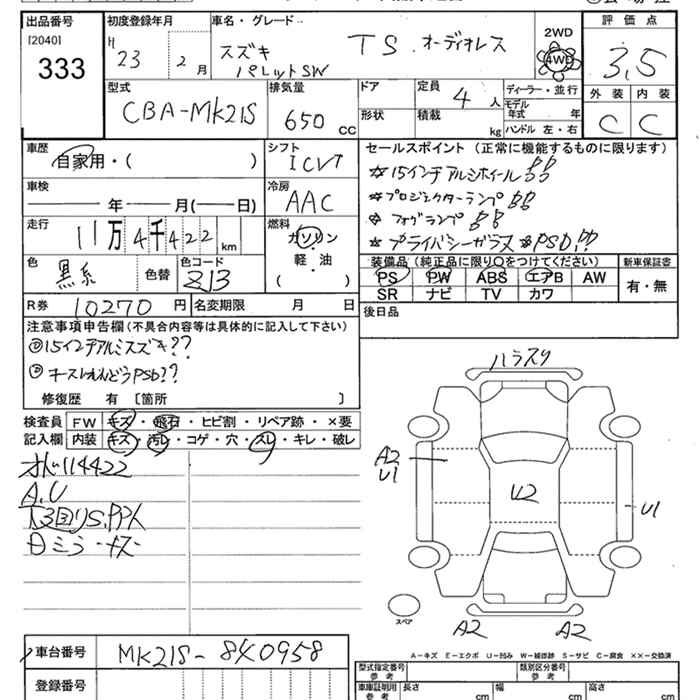 出品番号 初度登録年月 車名・グレード 2WD 評価点
[2040] H 23 2月 スズキ TS オーディオレス 4WD 3.5
333 パレットSW 外装 内装
型式 排気量 ドア 定員 ディーラー・並行 C C
CBA-MK21S 650 CC 形状 積載 4人 モデル年式 年
kg ハンドル 左・右
車歴 シフト セールスポイント(正常に機能するものに限ります)
自家用・( ) ICVT ☆15インチアルミホイール
車検 冷房 ☆プロジェクターランプ
年 月( 日) AAC ☆フォグランプ
走行 燃料 ☆プライバシーガラス PSD!!
11万4千422km ガソリン
色 色替 色コード 軽・油 装備品(純正品に限り○をつけてください) 新車保証書
黒系 ZJ3 ( ) PS PW ABS エアB AW 有・無
SR ナビ TV カワ
R券 10270円 名変期限 月 日 後日品
注意事項申告欄(不具合内容等は具体的に記入して下さい)
①15インチアルミスズキ??
②
修復歴 有 〔箇所 〕
検査員 FW キズ・飛石・ヒビ割・リペア跡・×要
記入欄 内装 キズ・汚レ・コゲ・穴・スレ・キレ・破レ
114422
A.U
ハラスリ
A2 U1
U2
U1
A2 A2
スペア
A-キズ E-エクボ U-凹み W-補修跡 S-サビ C-腐食 XX-交換済
車台番号 MK21S-840958 型式指定番号 参考 類別区分番号 参考
登録番号 車庫証明用 参考 長さ cm 幅 cm 高さ cm